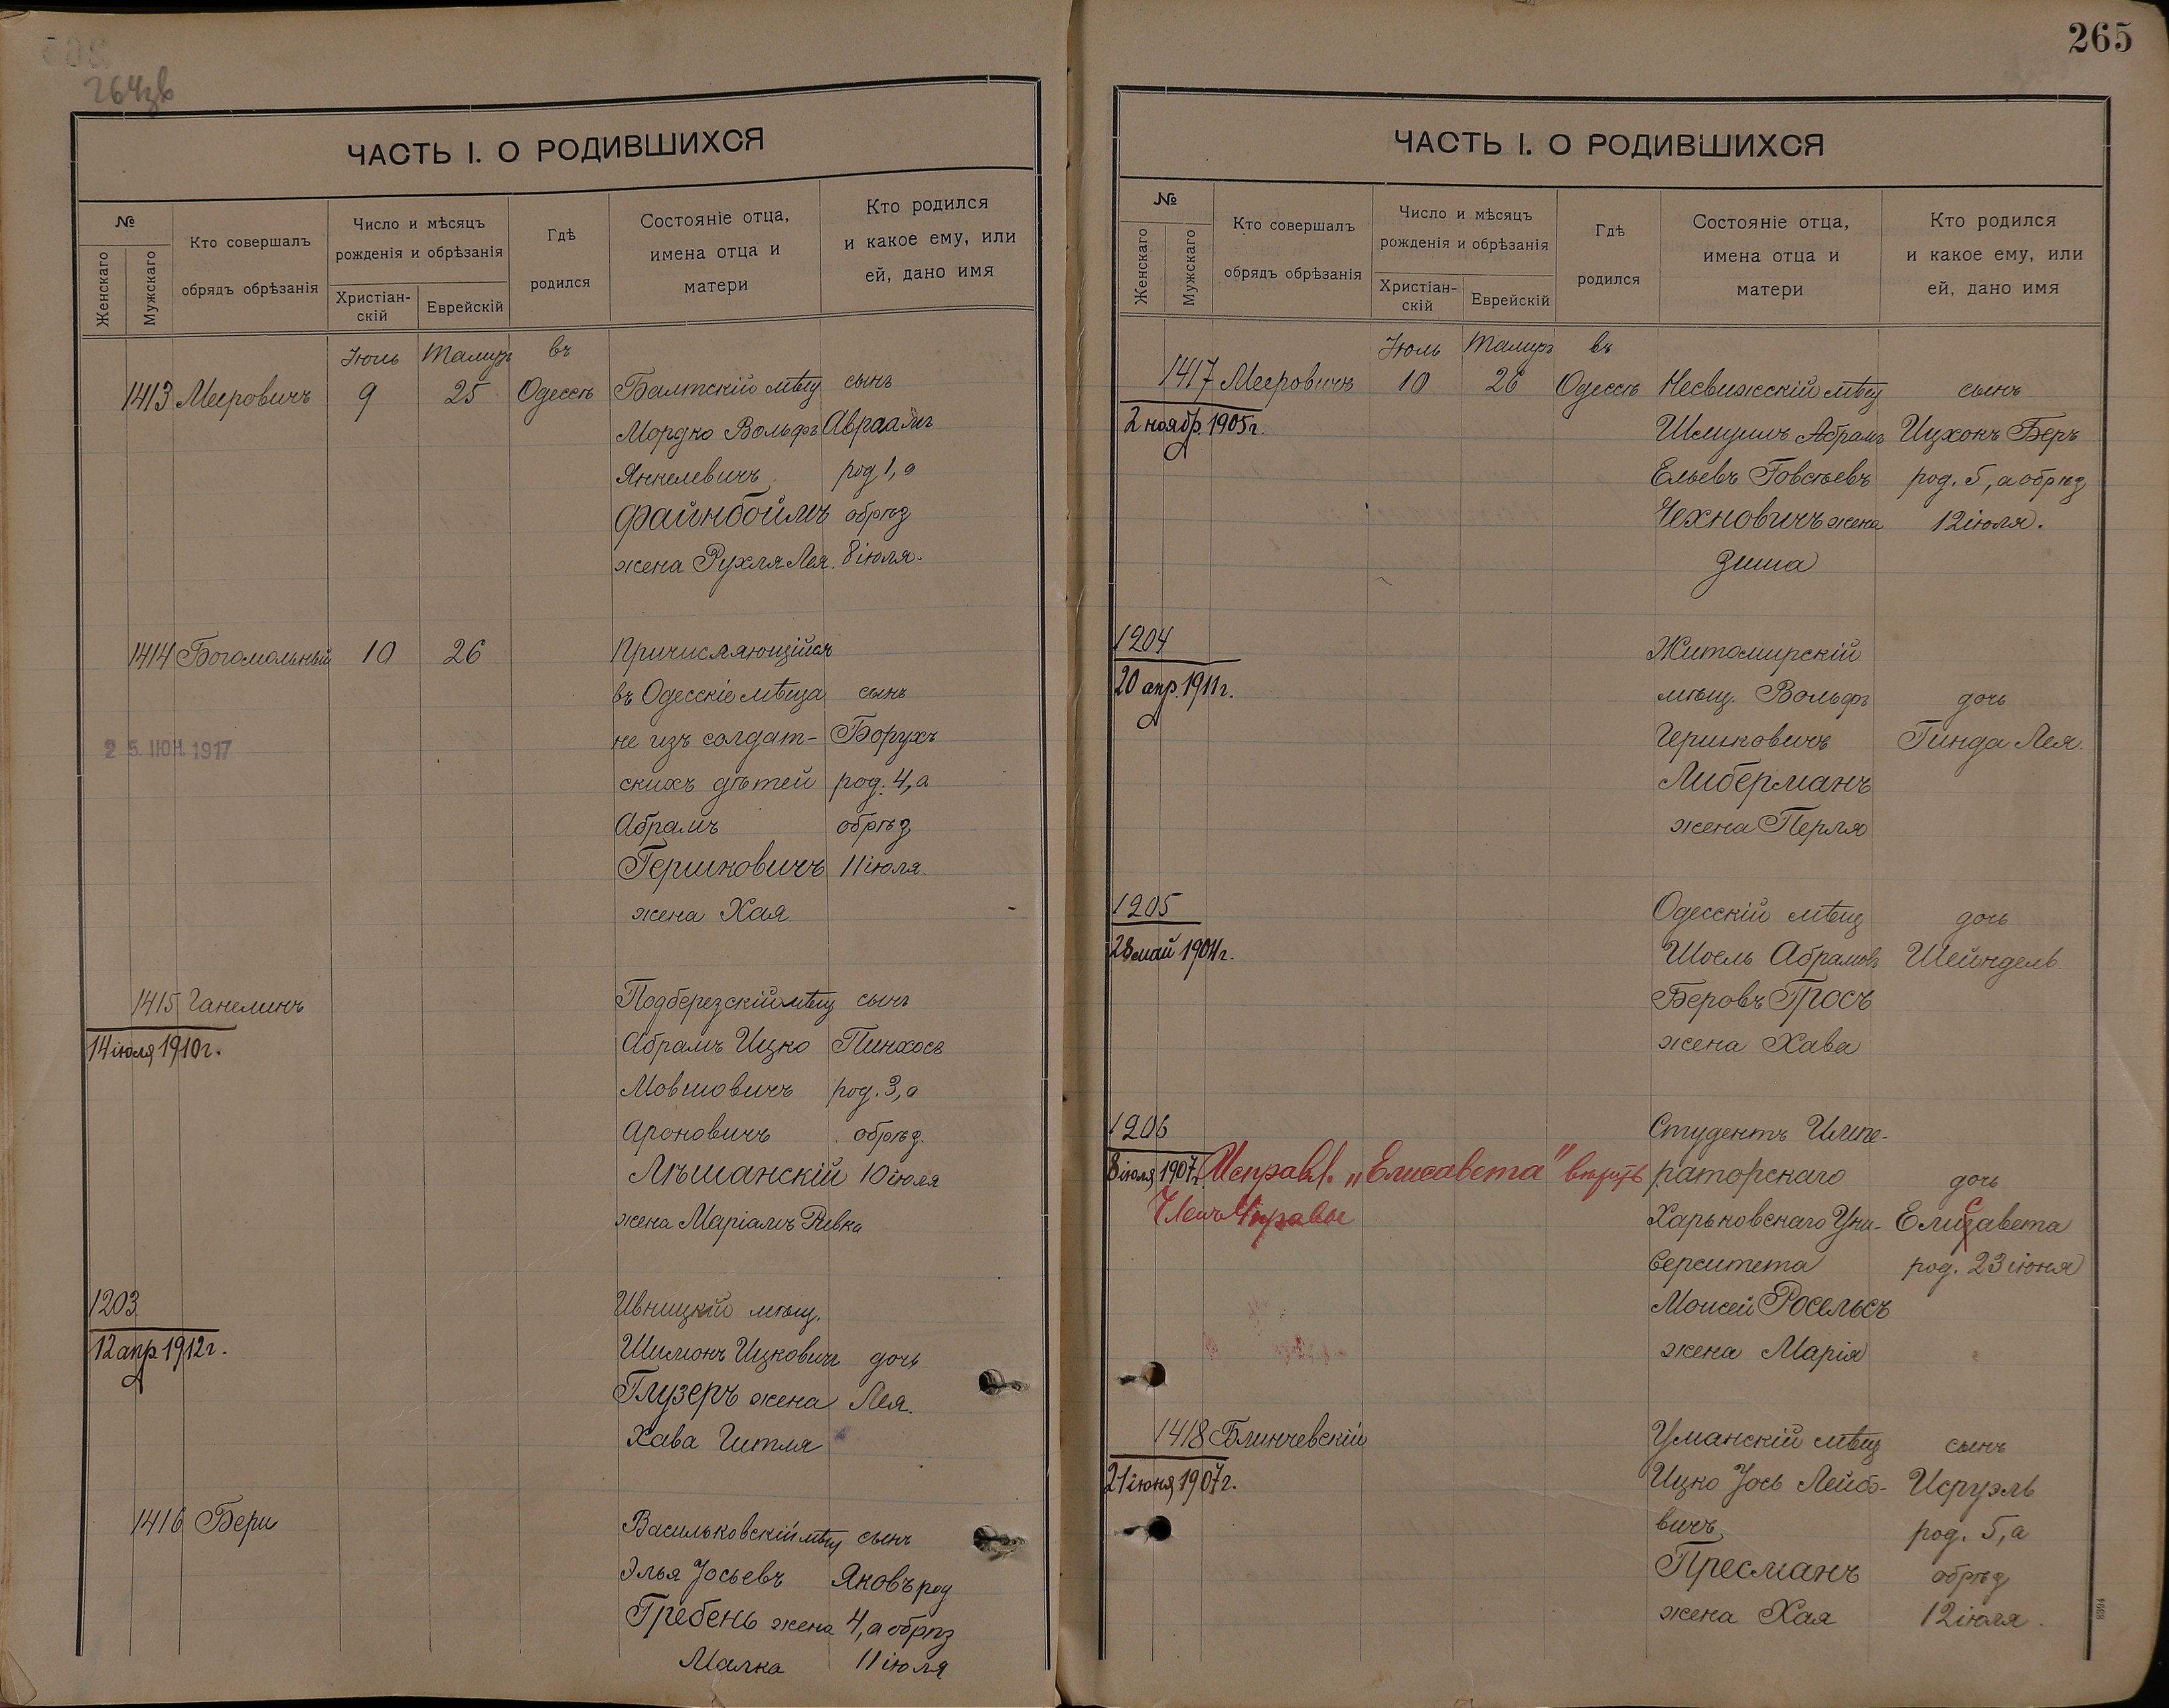 264зв
ЧАСТЬ I. О РОДИВШИХСЯ
№
Женскаго
Мужскаго
Кто совершалъ
обрядъ обрѣзанія
Число и мѣсяцъ
рожденія и обрѣзанія
Христіан-
скій
Еврейскій
Гдѣ
родился
Состояніе отца,
имена отца и
матери
Кто родился
и какое ему, или
ей, дано имя
Іюль Тамузъ въ
1413 Мееровичъ 9 25 Одессѣ Балтскій мѣщ сынъ
Мордко Вольфъ Авраамъ
Янкелевичъ род 1, а
Файнбоймъ обрѣз
жена Рухля Лея. 8 іюля.
1414 Богомольный 10 26 Причисляющійся
въ Одесскіе мѣща сынъ
не изъ солдат- Борухъ
скихъ дѣтей род. 4, а
Абрамъ обрѣз
Гершковичъ 11 іюля.
жена Хая.
2 5. ІЮН. 1917
1415 Ганелинъ Подберезскій мѣщ сынъ
14 іюля 1910 г. Абрамъ Ицко Пинхосъ
Мовшовичъ род. 3, а
Ароновичъ обрѣз.
Лѣшанскій 10 іюля
жена Маріамъ Ривка
1203 Ивницкій мѣщ.
12 апр 1912 г. Шимонъ Ицковичъ дочь
Глузеръ жена Лея.
Хава Гитля
1416 Бери Васильковскій мѣщ сынъ
Элья Іосьевъ Яковъ род
Гребень жена 4, а обрѣз
Малка 11 іюля
265
ЧАСТЬ I. О РОДИВШИХСЯ
№
Женскаго
Мужскаго
Кто совершалъ
обрядъ обрѣзанія
Число и мѣсяцъ
рожденія и обрѣзанія
Христіан-
скій
Еврейскій
Гдѣ
родился
Состояніе отца,
имена отца и
матери
Кто родился
и какое ему, или
ей, дано имя
Іюль Тамузъ въ
1417 Мееровичъ 10 26 Одессѣ Несвижскій мѣщ сынъ
2 ноябр. 1905 г. Шмуилъ Абрамъ Ицхокъ Беръ
Ельевъ Говсѣевъ род. 5, а обрѣз
Чехновичъ жена 12 іюля.
Зиша
1204 Житомирскій
20 апр. 1911 г. мѣщ. Вольфъ дочь
Гершковичъ Гинда Лея.
Либерманъ
жена Перля
1205 Одесскій мѣщ дочь
28 май 1904 г. Шоель Абрамовъ Шейндель
Беровъ Гросъ
жена Хава
1206 Студентъ Импе-
8 іюля 1907 г. Исправл. „Елисавета" вѣрить раторскаго дочь
Членъ Управы Харьковскаго Уни- Елисавета
верситета род. 23 іюня
Моисей Росельсъ
жена Марія
1418 Блинчевскій Уманскій мѣщ сынъ
21 іюня 1907 г. Ицко Іось Лейбо- Исруэль
вичъ род. 5, а
Пресманъ обрѣз
жена Хая 12 іюля.